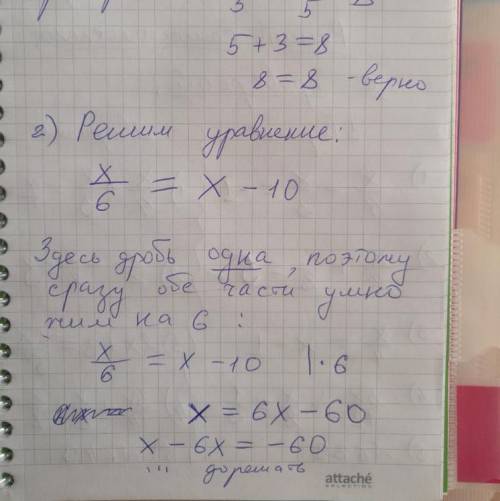 5 + 3 = 8
8 = 8 - верно
2) Решим уравнение:
x/6 = x - 10
Здесь дробь одна, поэтому
сразу обе части умно
жим на 6 :
x/6 = x - 10 | · 6
x = 6x - 60
x - 6x = -60
... дорешать
attaché